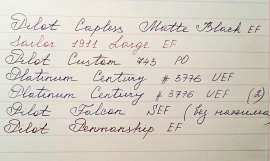 Pilot Capless Matte Black EF
Sailor 1911 Large EF
Pilot Custom 743 PO
Platinum Century #3776 UEF
Platinum Century #3776 UEF (2)
Pilot Falcon SEF (без нажима)
Pilot Penmanship EF